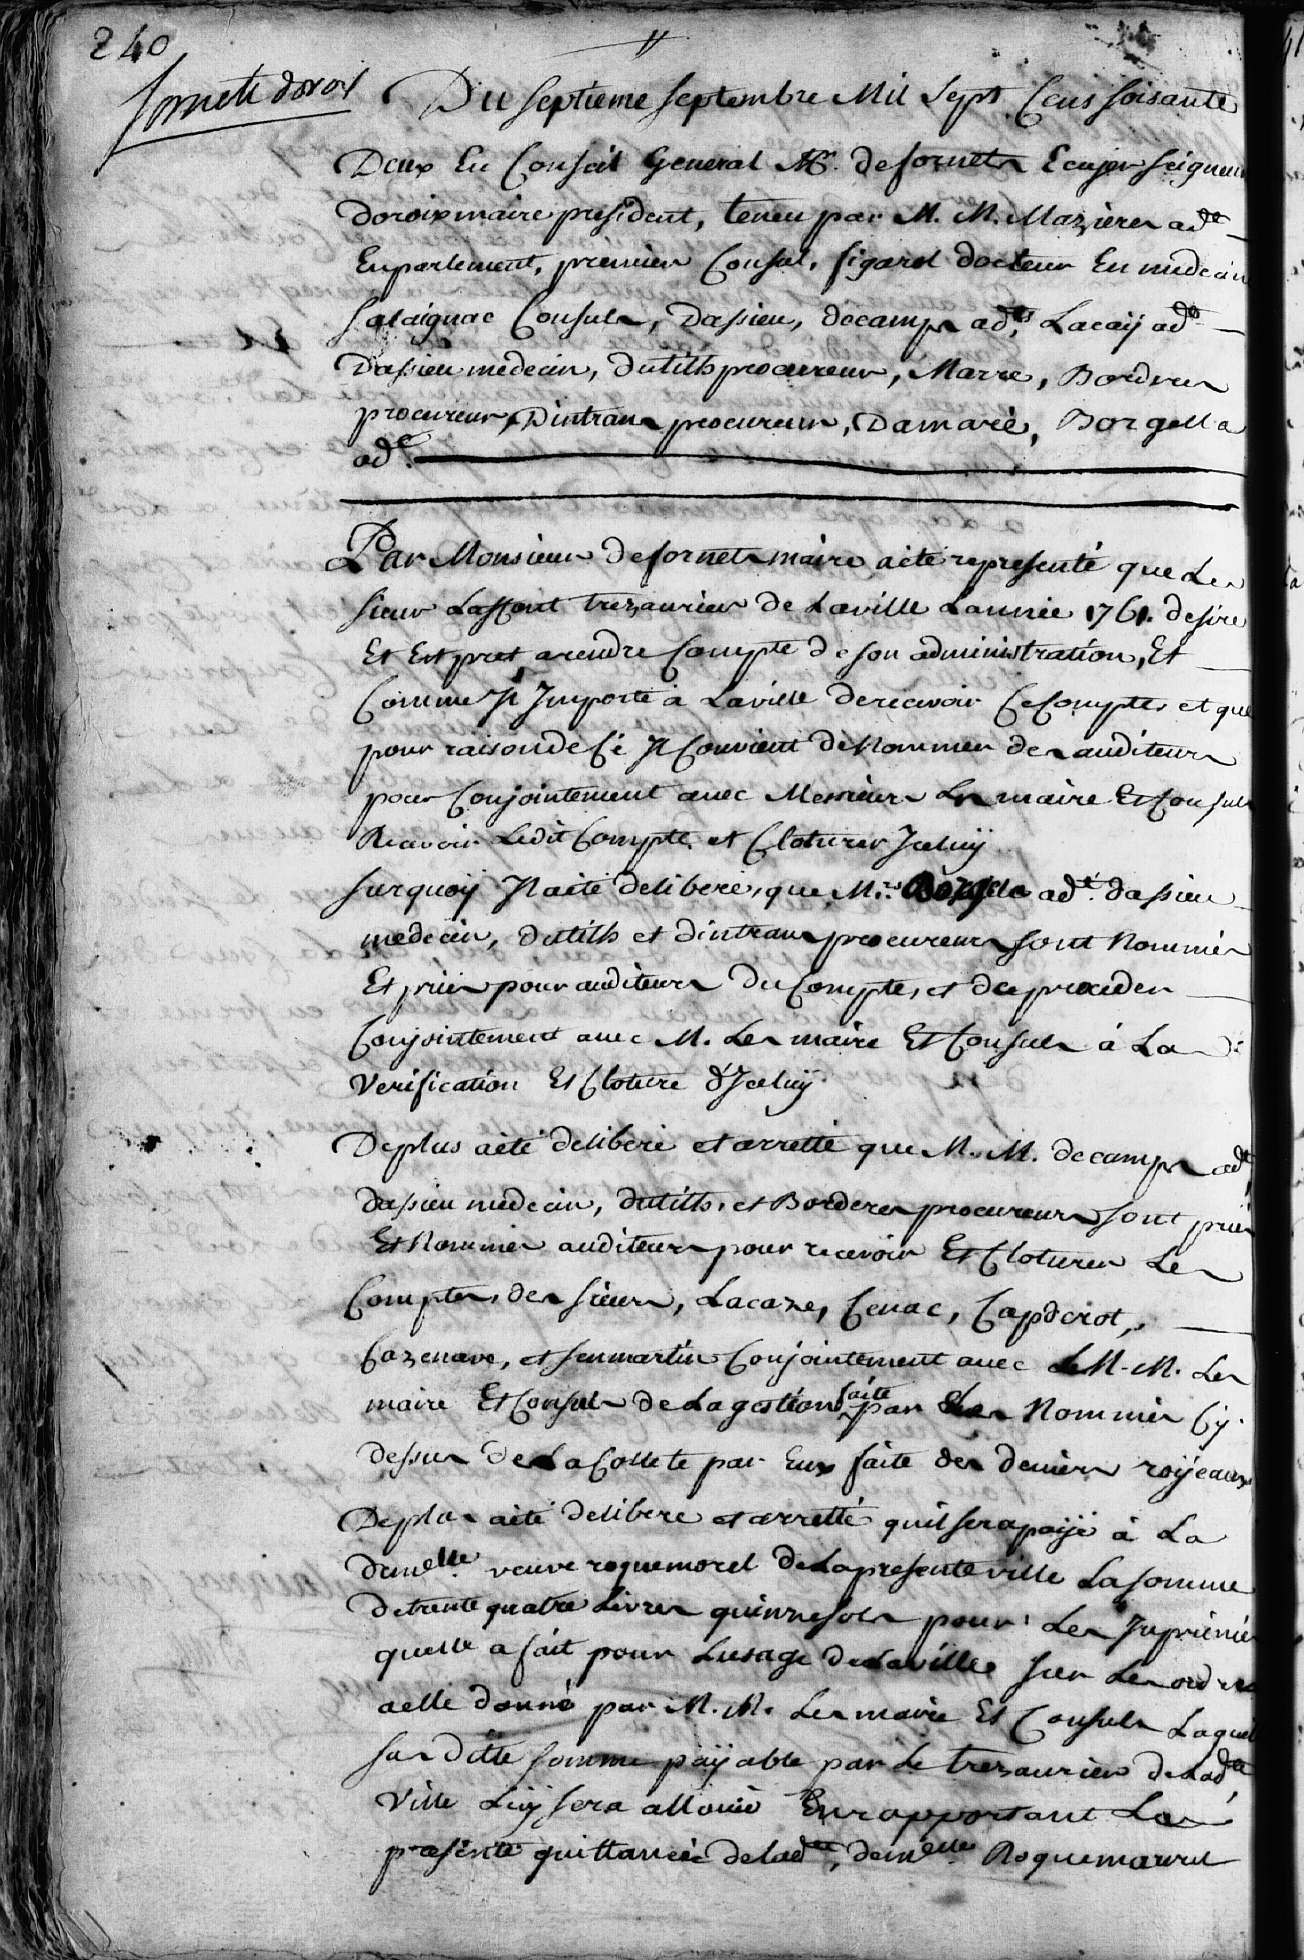 240
fornets doroix
Du septieme septembre Mil Sept Cens soisante
Deux En Conseil General Mr. defornets Ecuyer seigneur
doroix maire president, tenu par M. M. Mazieres adt
Enparlement, premier Consul, figarol docteur En medecin
salaignac Consuls, Dassieu, decamps adts, Lacaÿ adt
Dassieu medecin, dutilh procureur, Marre, Borderes
procureur, Dintrans procureur, Damaré, Borgella
adt.
Par Monsieur defornets maire aété representé que Le
sieur Laffont trezaurier de Laville Lannée 1761. desire
Et Est pret arendre Compte de son administration, Et
Comme Jl Jmporte à Laville derecevoir Ce Compte, et que
pour raison de Cé Jl Convient de Nommer des auditeurs
pour Conjointement avec Messieurs Les maire Et Consuls
Recevoir Ledit Compte, et Cloturer Jceluÿ
surquoÿ Jl aété deliberé, que Mrs. Borgela adt. dassieu
medecin, dutilh et dintrans procureurs sont Nommés
Et priés pour auditeurs du Compte, et de proceder
Conjointement avec M. Les maire Et Consuls à La
Verification Et Cloture d'Jceluÿ
Deplus aété deliberé et arretté que M. M. decamps adt,
dassieu medecin, dutilh, et Borderes procureurs sont priés
Et Nommés auditeurs pour recevoir Et Cloturer Les
Comptes, des sieurs, Lacaze, Cenac, Capderot,
Cazenave, et senmartin Conjointement avec M. M. Les
maire Et Consuls de La gestion faite par Les Nommés Cÿ
dessus de La Collete par Eux faite des deniers roÿeaux
Deplus aété deliberé et arretté quil sera paÿé à La
demelle. veuve roquemorel de Lapresente ville La somme
de trente quatre Livres quinse sols pour Les Jmprimés
quelle a fait pour Lusage de Laville sur Les ordres
aelle donné par M. M. Les maire Et Consuls Laquelle
susditte somme paÿable par Le trezaurier de Ladte
Ville Luÿ sera alloué En rapportant La
presente quittancée de ladte, demelle Roquemaurel